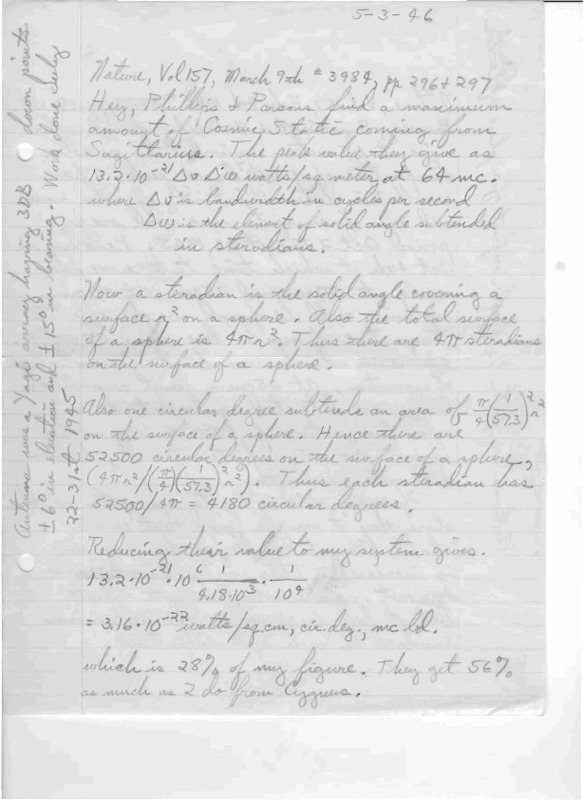 5-3-46
Nature, Vol 157, March 9th # 3984, pp 296 & 297
Hey, Phillips & Parsons find a maximum
amount of Cosmic Static coming from
Sagittarius. The peak value they give as
13.2·10⁻²¹ Δν Δω watts/sq meter at 64 mc.
where Δν is bandwidth in cycles per second
Δω is the element of solid angle subtended
in steradians.
Now a steradian is the solid angle covering a
surface r² on a sphere. Also the total surface
of a sphere is 4πr². Thus there are 4π steradians
on the surface of a sphere.
Also one circular degree subtends an area of π/4 (1/57.3)² r²
on the surface of a sphere. Hence there are
52500 circular degrees on the surface of a sphere,
(4πr²/(π/4)(1/57.3)² r²). Thus each steradian has
52500/4π = 4180 circular degrees.
Reducing their value to my system gives.
13.2·10⁻²¹·10⁶ 1/4.18·10³ · 1/10⁴
= 3.16·10⁻²² watts/sq.cm, cir.deg., mc bd.
which is 28% of my figure. They get 56%
as much as I do from Cygnus.
Antenna was a Yagi array having 3DB down points
±6° in elevation and ±15° in bearing. Work done July
22-31st 1945